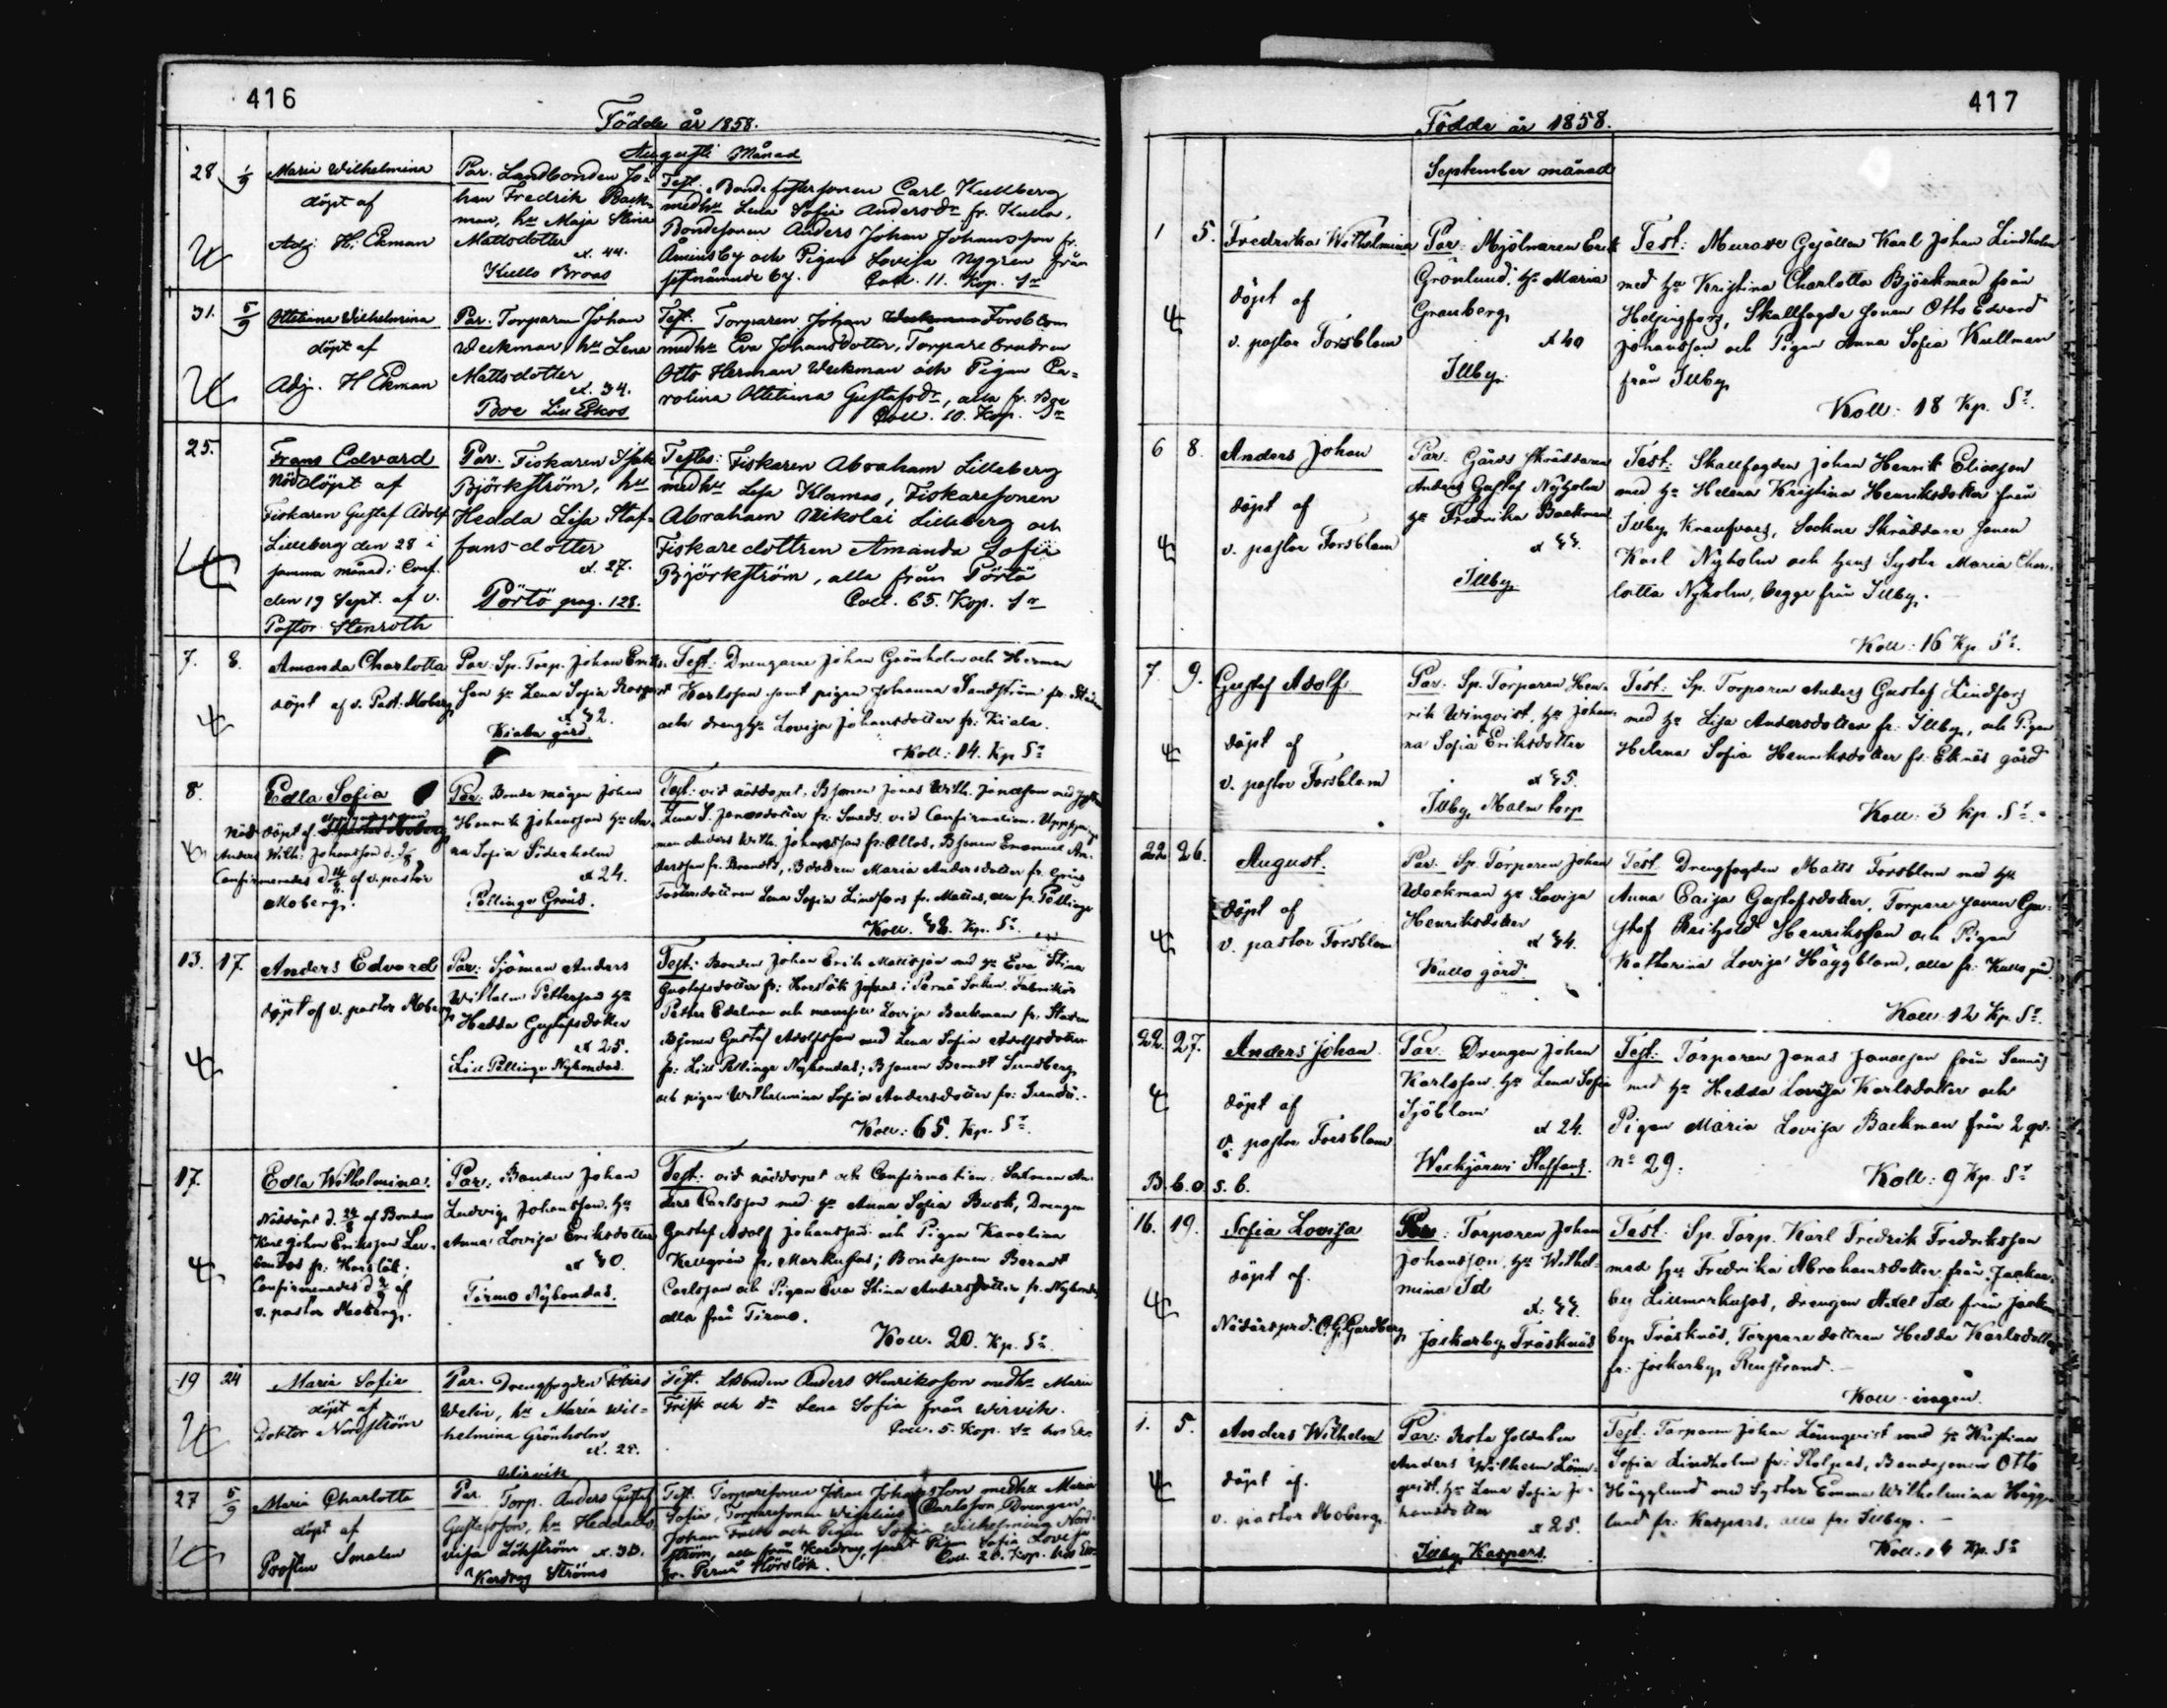 416
Födde år 1858.
Augusti Månad
28 1/9 Maria Wilhelmina
döpt af
Adj. H. Ekman
Par. Landbonden Jo-
han Fredrik Back-
man, hu Maja Stina
Mattsdotter
æt. 44.
Kullo Broas
Test. Bonde fostersonen Carl Kullberg
med hu Lena Sofia Andersdr fr. Kullo,
Bondesonen Anders Johan Johansson fr.
Åminsby och Pigan Lovisa Nygren från
sistnämnde by. Coll. 11. Kop. Sr
31. 5/9 Ottiliana Wilhelmina
döpt af
Adj. H Ekman
Par. Torparen Johan
Weckman, hu Lena
Mattsdotter
æt. 34.
Boe Lill Eskos
Test. Torparen Johan Forsblom
med hu Eva Johansdotter, Torpare
Otto Herman Weckman och Pigan Ca-
rolina Ottiliana Gustafsdr, alla fr. Boe
Coll. 10. Kop. Sr
25.
Frans Edvard
Nöddöpt af
Fiskaren Gustaf Adolf
Lilleberg den 28 i
samma månad; Conf.
den 19 Sept. af v.
Pastor Stenroth
Par: Fiskaren Isak
Björkström, hu
Hedda Lisa Staf-
fans-dotter
æt. 27.
Pörtö pag. 128.
Testes: Fiskaren Abraham Lilleberg
med hu Lisa Klamas, Fiskaresonen
Abraham Nikolai Lilleberg och
Fiskaredottren Amanda Sofia
Björkström, alla från Pörtö
Coll. 65. Kop. Sr
7. 8. Amanda Charlotta
döpt af v. Past. Moberg
Par: Sp. Torp. Johan Eriks-
son hu Lena Sofia Rosqvist
æt 32.
Kiala gård.
Test: Drengarne Johan Grönholm och Herman
Karlsson samt pigan Johanna Sandström fr. Staden
och drenghu Lovisa Johansdotter fr. Kiala.
Koll: 14. Kp Sr
8.
Edla Sofia
Nöd döpt af
Anders Wilh: Johansson d.
Confirmerades d 14/8 af v. pastor
Moberg.
Par: Bonde mågen Johan
Henrik Johansson hu An-
na Sofia Söderholm
æt 24.
Pellinge Gräns.
Test: vid nöddopet, Bsonen Jonas Wilh. Jonasson med
Lena S. Jonasdotter fr: Smeds. vid Confirmation.
Anders Wilh. Johansson fr. Ollas, Bsonen Emanuel An-
dersson fr. Brandts, Bdottren Maria Andersdotter fr.
Fosterdottren Lena Sofia Lindfors fr. Mattas, alla fr. Pellinge
Koll. 32. Kp. Sr.
13. 17. Anders Edvard
döpt af v. pastor Moberg
Par: Sjöman Anders
Wilhelm Pettersson hu
Hedda Gustafsdotter
æt 25.
Lill Pellinge Nybondas.
Test: Bonden Johan Erik Mattsson med hu Eva Stina
Gustafsdotter fr: Horslök i Pernå Socken. Fabrikör
Petter Edelman och mamsell Lovisa Backman fr. Staden
Bsonen Gustaf Adolfsson med Lena Sofia Adolfsdotter
fr: Lill Pellinge Nybondas; Bsonen Berndt Sundberg
och pigan Wilhelmina Sofia Andersdotter fr: Sundö.
Koll: 65. Kp. Sr.
17.
Edla Wilhelmina.
Nöddöpt d. 24/8 af Bonden
Karl Johan Eriksson
fr: Horslök;
Confirmerades d af
v. pastor Moberg.
Par: Bonden Johan
Ludvig Johansson, hu
Anna Lovisa Eriksdotter
æt 30.
Tirmo Nybondas.
Test: vid nöddopet och Confirmation: Saxman An-
ders Carlsson med hu Anna Sofia Busk, Drengen
Gustaf Adolf Johansson och Pigan Karolina
Kullgrén fr. Markusas; Bondesonen Berndt
Carlsson och Pigan Eva Stina Andersdotter fr. Nybondas
alla från Tirmo.
Koll. 20. Kp. Sr.
19 24 Maria Sofia
döpt af
Doktor Nordström
Par. Drengfogden Tobias
Welin, hu Maria Wil-
helmina Grönholm
æt. 28.
Wirvik
Test. Bonden Anders Henriksson med hu Maria
Frisk och dr Lena Sofia från Wervik.
Coll. 5. Kop. Sr hos Ekn
27 5/9 Maria Charlotta
döpt af
Prosten Smalen
Par. Torp. Anders Gustaf
Gustafsson, hu Hedda Lo-
visa Lökström æt. 30.
Kardrag Ströms
Test. Torparesonen Johan Johansson med hu Maria
Sofia, Torparesonen Wigelius Carlsson, Drengen
Johan och Pigan Sofia Wilhelmina Nord-
ström, alla från Kardrag, samt Pigan Sofia Lovisa
fr. Pernå Hörslök. Coll. 26. Kop. hos Ekn
417
Födde år 1858.
September månad
1 5. Fredrika Wilhelmina
döpt af
v. pastor Forsblom
Par: Mjölnaren Erik
Grönlund, hu Maria
Granberg
æt 40
Illby.
Test: Murare Gesällen Karl Johan Lindholm
med hu Kristina Charlotta Björkman från
Helsingfors, Skallfogde sonen Otto Edvard
Johansson och Pigan Anna Sofia Kullman
från Illby
Koll: 18 Kp. Sr.
6 8. Anders Johan
döpt af
v. pastor Forsblom
Par: Gårds Skräddaren
Anders Gustaf Nyholm
hu Fredrika Backman
æt 33.
Illby
Test: Skallfogden Johan Henrik Eliasson
med hu Helena Kristina Henriksdotter från
Illby Kraufvars, Sockne Skräddare sonen
Karl Nyholm och hans Syster Maria Char-
lotta Nyholm, begge från Illby.
Koll: 16 Kp Sr.
7 9. Gustaf Adolf
döpt af
v. pastor Forsblom
Par: Sp. Torparen Hen-
rik Winqvist, hu Johan-
na Sofia Eriksdotter
æt 35.
Illby Malm torp
Test: Sp. Torparen Anders Gustaf Lindfors
med hu Lisa Andersdotter fr. Illby, och Pigan
Helena Sofia Henriksdotter fr. Eknäs gård
Koll: 3 kp. Sr.
22 26. August.
döpt af
v. pastor Forsblom
Par. Sp. Torparen Johan
Weckman hu Lovisa
Henriksdotter
æt 34.
Kullo gård.
Test Drengfogden Matts Forsblom med hu
Anna Caisa Gustafsdotter, Torpare sonen Gu-
staf Reihold Henriksson och Pigan
Katharina Lovisa Häggblom, alla fr. Kullo gård.
Koll. 12 Kp. Sr.
22. 27. Anders Johan
döpt af
v. pastor Forsblom
B. b. o. s. b.
Par: Drengen Johan
Karlsson, hu Lena Sofia
Sjöblom
æt 24.
Weckjärwi Staffans.
Test: Torparen Jonas Jonasson från Sannäs
med hu Hedda Lovisa Karlsdotter och
Pigan Maria Lovisa Backman från 2 qv.
No 29.
Koll: 9 Kp. Sr
16. 19. Sofia Lovisa
döpt af.
Nådårspred. C. G. Gardberg
Par: Torparen Johan
Johansson, hu Wilhel-
mina Id
æt. 33.
Jackarby Träsknäs
Test: Sp. Torp. Karl Fredrik Fredriksson
med hu Fredrika Abrahamsdotter från Jackar-
by Lillmarkusas, drengen Axel Id från Jackar-
by Träsknäs, Torparedottren Hedda Karlsdotter
fr: Jackarby Renstrand.
Koll: ingen.
1. 5. Anders Wilhelm
döpt af.
v. pastor Moberg.
Par: Rote soldaten
Anders Wilhelm Lönn-
qvist, hu Lena Sofia Jo-
hansdotter
æt 25.
Illby Kaspers.
Test: Torparen Johan Lönnqvist med hu Kristina
Sofia Lindholm fr: Stolpas, Bondesonen Otto
Hägglund med Syster Emma Wilhelmina Hägg-
lund fr: Kaspers, alla fr. Illby.
Koll: 14 Kp. Sr